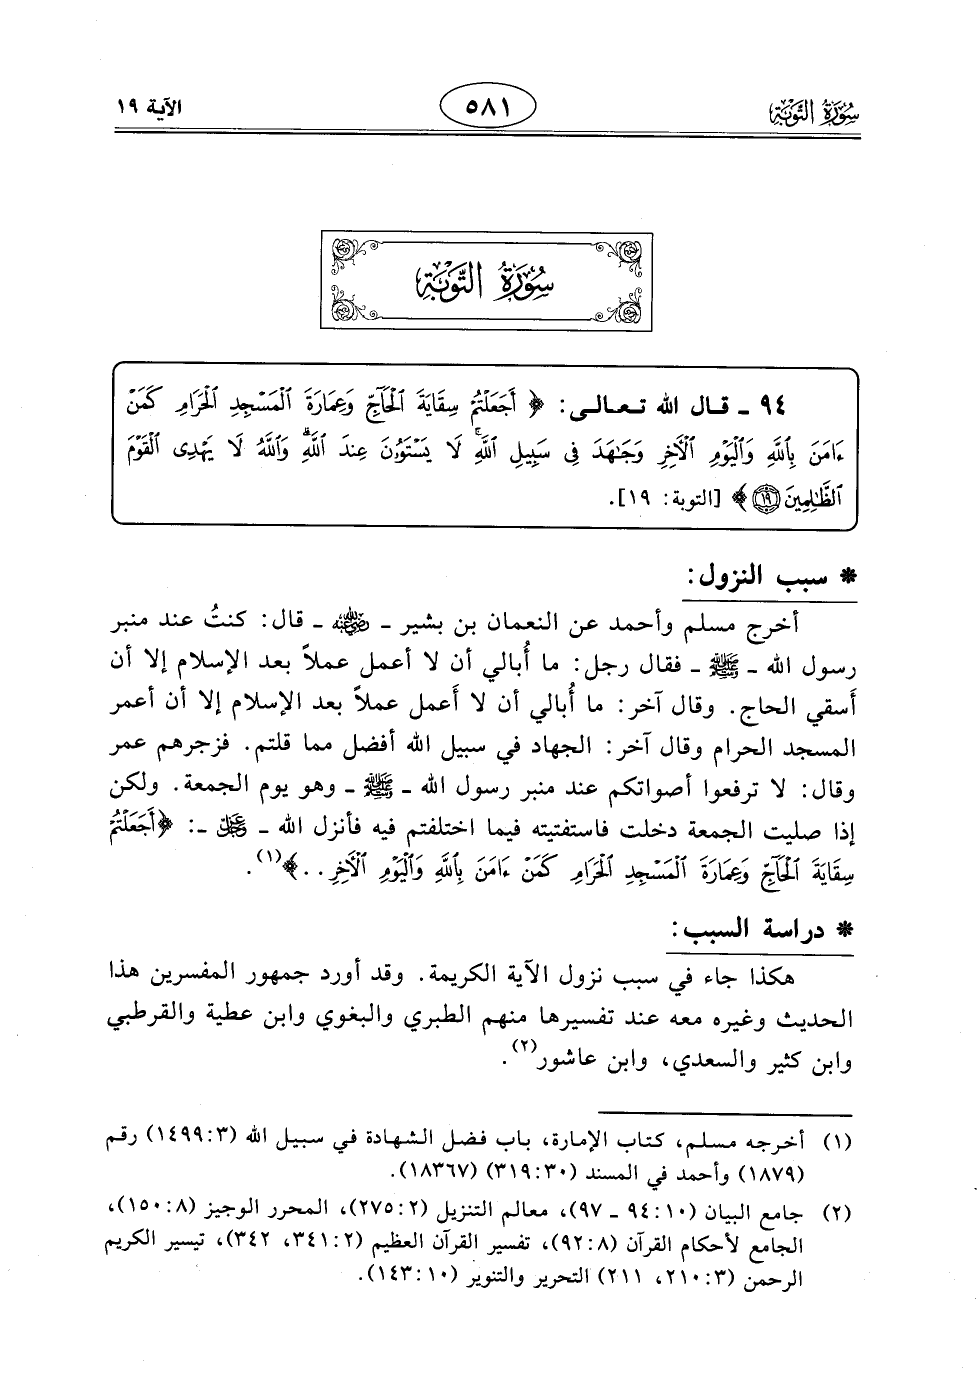 سُورَةُ التَّوْبَةِ
٥٨١
الآية ١٩
سُورَةُ التَّوْبَةِ
٩٤ ـ قال الله تعالى: ﴿ أَجَعَلْتُمْ سِقَايَةَ ٱلْحَآجِّ وَعِمَارَةَ ٱلْمَسْجِدِ ٱلْحَرَامِ كَمَنْ
ءَامَنَ بِٱللَّهِ وَٱلْيَوْمِ ٱلْأَخِرِ وَجَٰهَدَ فِى سَبِيلِ ٱللَّهِۚ لَا يَسْتَوُۥنَ عِندَ ٱللَّهِۗ وَٱللَّهُ لَا يَهْدِى ٱلْقَوْمَ
ٱلظَّٰلِمِينَ ١٩ ﴾ [التوبة: ١٩].
* سبب النزول:
أخرج مسلم وأحمد عن النعمان بن بشير ـ رضي الله عنه ـ قال: كنتُ عند منبر
رسول الله ـ ﷺ ـ فقال رجل: ما أُبالي أن لا أعمل عملاً بعد الإسلام إلا أن
أسقي الحاج. وقال آخر: ما أُبالي أن لا أَعمل عملاً بعد الإسلام إلا أن أعمر
المسجد الحرام وقال آخر: الجهاد في سبيل الله أفضل مما قلتم. فزجرهم عمر
وقال: لا ترفعوا أصواتكم عند منبر رسول الله ـ ﷺ ـ وهو يوم الجمعة. ولكن
إذا صليت الجمعة دخلت فاستفتيته فيما اختلفتم فيه فأنزل الله ـ عز وجل ـ: ﴿أَجَعَلْتُمْ
سِقَايَةَ ٱلْحَآجِّ وَعِمَارَةَ ٱلْمَسْجِدِ ٱلْحَرَامِ كَمَنْ ءَامَنَ بِٱللَّهِ وَٱلْيَوْمِ ٱلْأَخِرِ . . .﴾(١).
* دراسة السبب:
هكذا جاء في سبب نزول الآية الكريمة. وقد أورد جمهور المفسرين هذا
الحديث وغيره معه عند تفسيرها منهم الطبري والبغوي وابن عطية والقرطبي
وابن كثير والسعدي، وابن عاشور(٢).
(١) أخرجه مسلم، كتاب الإمارة، باب فضل الشهادة في سبيل الله (٣: ١٤٩٩) رقم
(١٨٧٩) وأحمد في المسند (٣٠: ٣١٩) (١٨٣٦٧).
(٢) جامع البيان (١٠: ٩٤ ـ ٩٧)، معالم التنزيل (٢: ٢٧٥)، المحرر الوجيز (٨: ١٥٠)،
الجامع لأحكام القرآن (٨: ٩٢)، تفسير القرآن العظيم (٢: ٣٤١، ٣٤٢)، تيسير الكريم
الرحمن (٣: ٢١٠، ٢١١) التحرير والتنوير (١٠: ١٤٣).